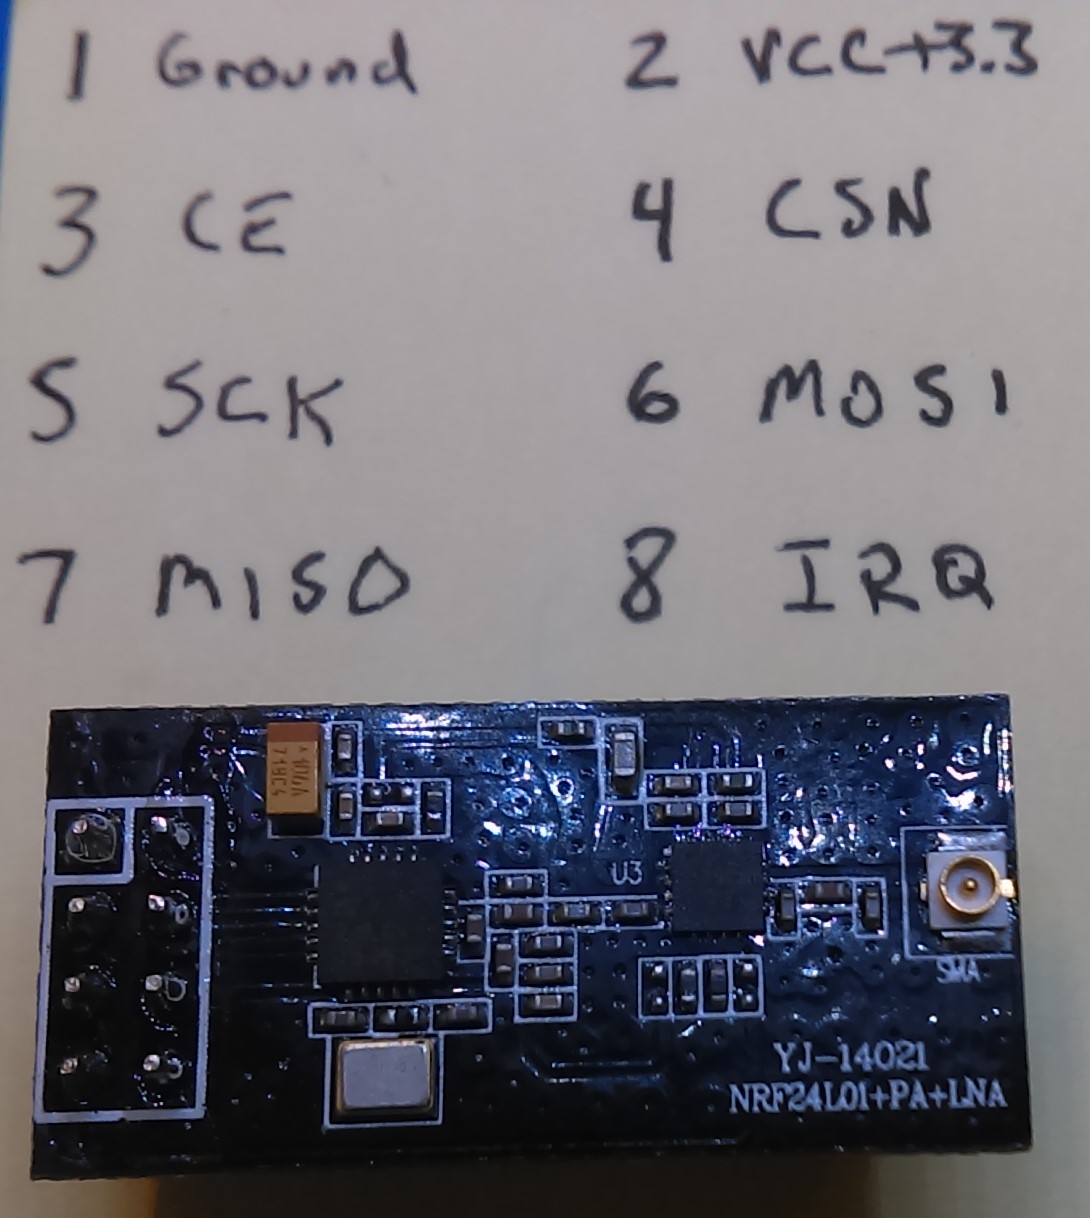 1 Ground 2 VCC+3.3
3 CE 4 CSN
5 SCK 6 MOSI
7 MISO 8 IRQ
U3
SMA
YJ-14021
NRF24L01+PA+LNA